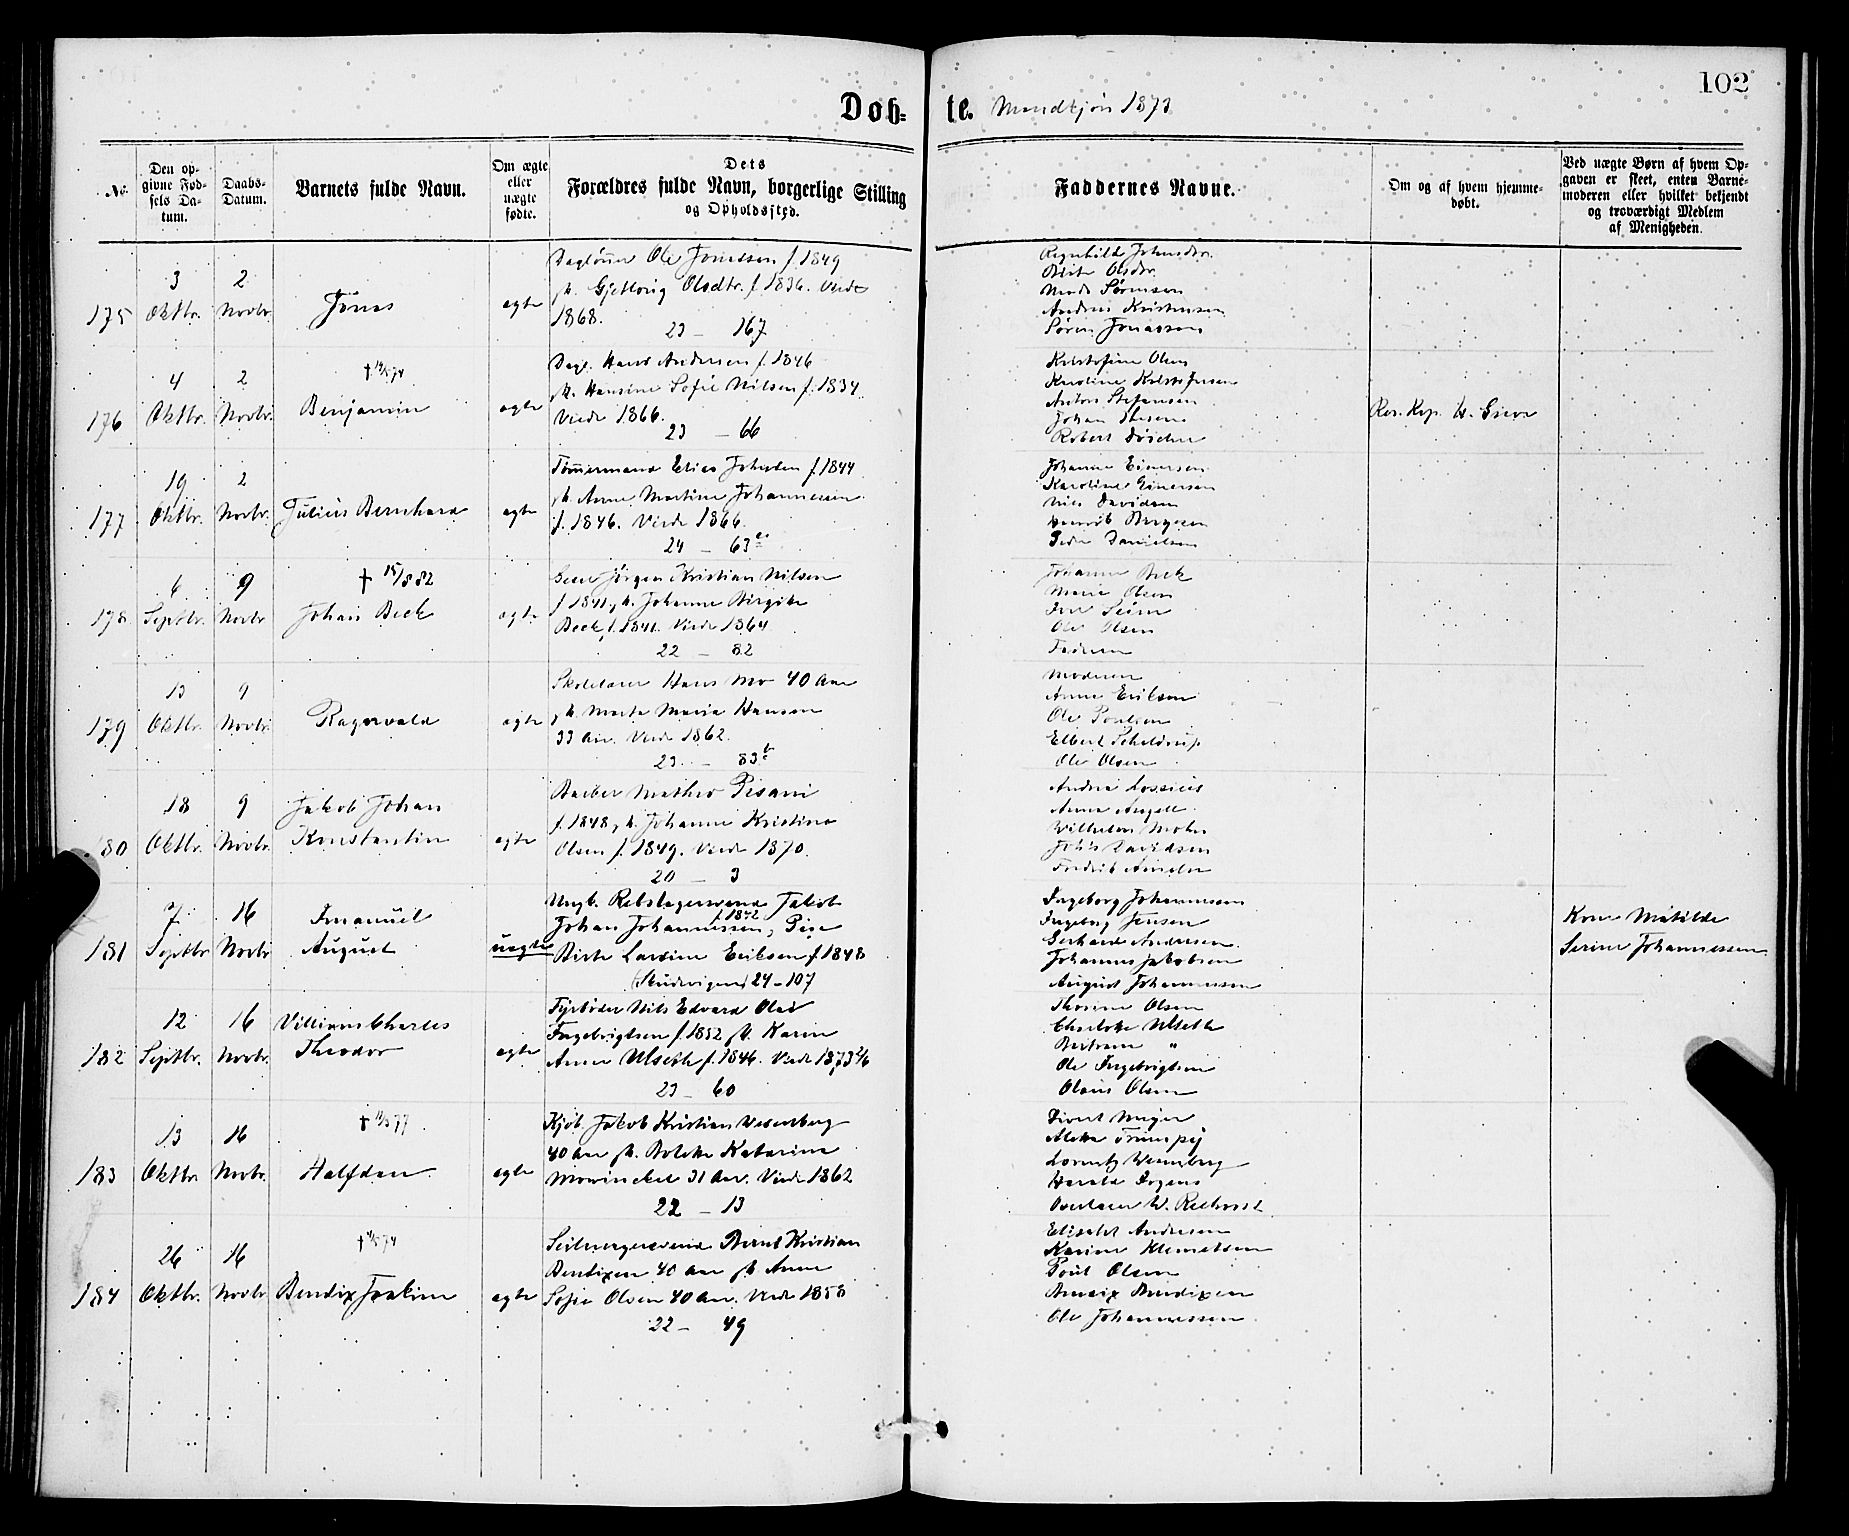 102
Døb= te. Mandkjøn 1873
No.
Den op-
givne Fød-
sels Da-
tum.
Daabs-
Datum.
Barnets fulde Navn.
Om ægte
eller
uægte
fødte.
Dets
Forældres fulde Navn, borgerlige Stilling
og Opholdssted.
Faddernes Navne.
Om og af hvem hjemme-
døbt.
Ved uægte Børn af hvem Op-
gaven er skeet, enten Barne-
moderen eller hvilket bekjendt
og troværdigt Medlem
af Menigheden.
175
3
Oktbr.
2
Novbr.
Jonas
ægte
Dagløner Ole Jonassen f. 1849
Olsdtr. f. 1836. Viede
1868.
23 — 167
Brite Olsdtr.
Sørensen
Andreas Kristensen
Søren Jonassen
176
4
Oktbr.
2
Novbr.
Benjamin
ægte
Dagl. Hans Andersen f. 1846
Hansine Sofie Nilsen f. 1834.
Viede 1866.
23 — 66
Olsen
Karoline Kristofersen
Anton Stefansen
Johan
Robert
Res. Kap.
177
19
Oktbr.
2
Novbr.
Julius Bernhard
ægte
Tømmermand Elias Johnsen f. 1844
Anne Martine Johannessen
f. 1846. Viede 1866.
24 — 63
Johanne Einersen
Karoline Einersen
Nils Davidsen
Peder Danielsen
178
6
Septbr.
9
Novbr.
† 15/8 82
Johan Beck
ægte
Jørgen Kristian Nilsen
f 1841, Johanne Birgitte
Beck, f. 1841. Viede 1864
22 — 82
Johanne Beck
Marie Olsen
Ole Olsen
Faderen
179
13
Oktbr.
9
Novbr.
Ragnvald
ægte
Skolelærer Hans Mo 40 Aar
Marta Maria Hansen
33 Aar. Viede 1862.
23 — 83
Moderen
Anne Eriksen
Ole Poulsen
Elbert Scheldrup
Ole Olsen
180
18
Oktbr.
9
Novbr.
Jakob Johan
Konstantin
ægte
Barber Matheo Pisani
f. 1848, Johanne Kristine
Olsen f. 1849. Viede 1870.
20 — 3
Andrea Lossius
Anna Angell
Wilhelm Mohn
Johs Davidsen
Fredrik
181
7
Septbr
16
Novbr
Imanuel
August
uægte
Ungk. Rebslagersvend Jakob
Johan Johannessen, f. 1842 Pige
Birte Lovise Eriksen f 1848
(Skudevigen) 24 — 107
Ingeborg Johannessen
Ingeborg Jensen
Gerhard Andersen.
Johannes Jakobsen
August Johannessen
Kone Matilde
Serine Johannessen
182
12
Septbr.
16
Novbr.
Villiam Charles
Theodor
ægte
Fyrbøder Nils Edvard Olai
Ingebrigtsen f. 1852 Karen
Anna Ulseth f. 1846. Viede 1873 2/6
23 — 60
Thorine Olsen
Charlotte Ulseth
Bertram "
Ole Ingebrigtsen
Olaus Olsen
183
13
Oktbr
16
Novbr.
Halfdan
ægte
Kjøb. Jakob Kristian Wesenberg
40 Aar Bolette Katarina
Mowinckel 31 Aar. Viede 1862
22 — 13
Meyer
Lorentz Wesenberg
Harald Irgens
184
26
Oktbr.
16
Novbr.
Bendix Joakim
ægte
Seilmagersvend Bernt Kristian
Bendixen 40 Aar Anne
Sofie Olsen 40 Aar. Viede 1858
22 — 49
Elisabet Andersen
Karine Klemetsen
Poul Olsen
Bendix Bendixen
Ole Johannessen